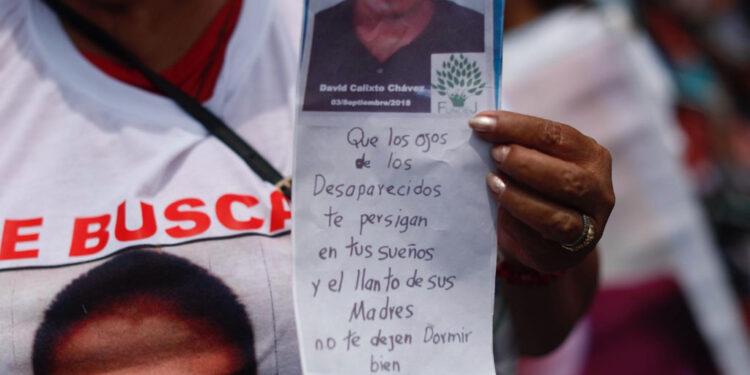 E BUSCA
David Calixto Chávez
03/Septiembre/2018
Que los ojos
de los
Desaparecidos
te persigan
en tus sueños
y el llanto de sus
Madres
no te dejen Dormir
bien